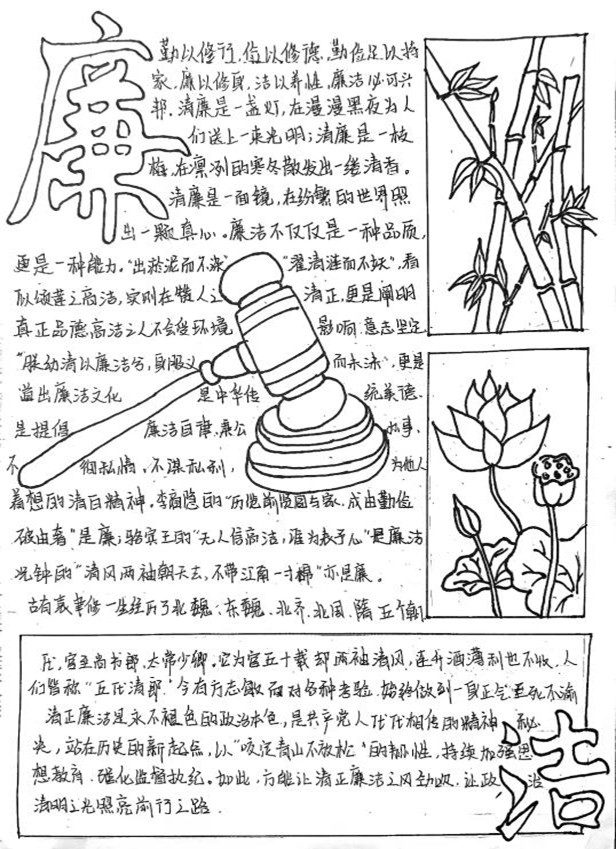 廉
勤以修行,俭以修德,勤俭足以持
家,廉以修身,洁以养性,廉洁必可兴
邦,清廉是一盏灯,在漫漫黑夜为人
们送上一束光明;清廉是一枝
梅,在凛冽的寒冬散发出一缕清香。
清廉是一面镜,在纷繁的世界照
出一颗真心。廉洁不仅仅是一种品质,
更是一种能力。"出淤泥而不染 "濯清涟而不妖",看
似颂莲之高洁,实则在赞人之 清正,更是阐明
真正品德高洁之人不会受环境 影响,意志坚定
"朕幼清以廉洁兮,身服义 而未沫",更是
道出廉洁文化 是中华传 统美德、
是提倡 廉洁自律,秉公 办事,
不 徇私情,不谋私利, 为他人
着想的清白精神。李商隐的"历览前贤国与家,成由勤俭
破由奢"是廉;骆宾王的"无人信高洁,谁为表予心"是廉洁
况钟的"清风两袖朝天去,不带江南一寸棉"亦是廉。
古有袁聿修一生经历了北魏、东魏、北齐、北周、隋五个朝
代,官至尚书郎、太常少卿。它为官五十载却两袖清风,连升酒薄利也不收,人
们皆称"五代清郎"今有方志敏面对各种考验,始终做到一身正气至死不渝
清正廉洁是永不褪色的政治本色,是共产党人代代相传的精神 秘
,站在历史的新起点,以"咬定青山不放松"的韧性,持续加强思
想教育、强化监督执纪。如此,方能让清正廉洁之风劲吹,让政 治
清明之光照亮前行之路.
洁